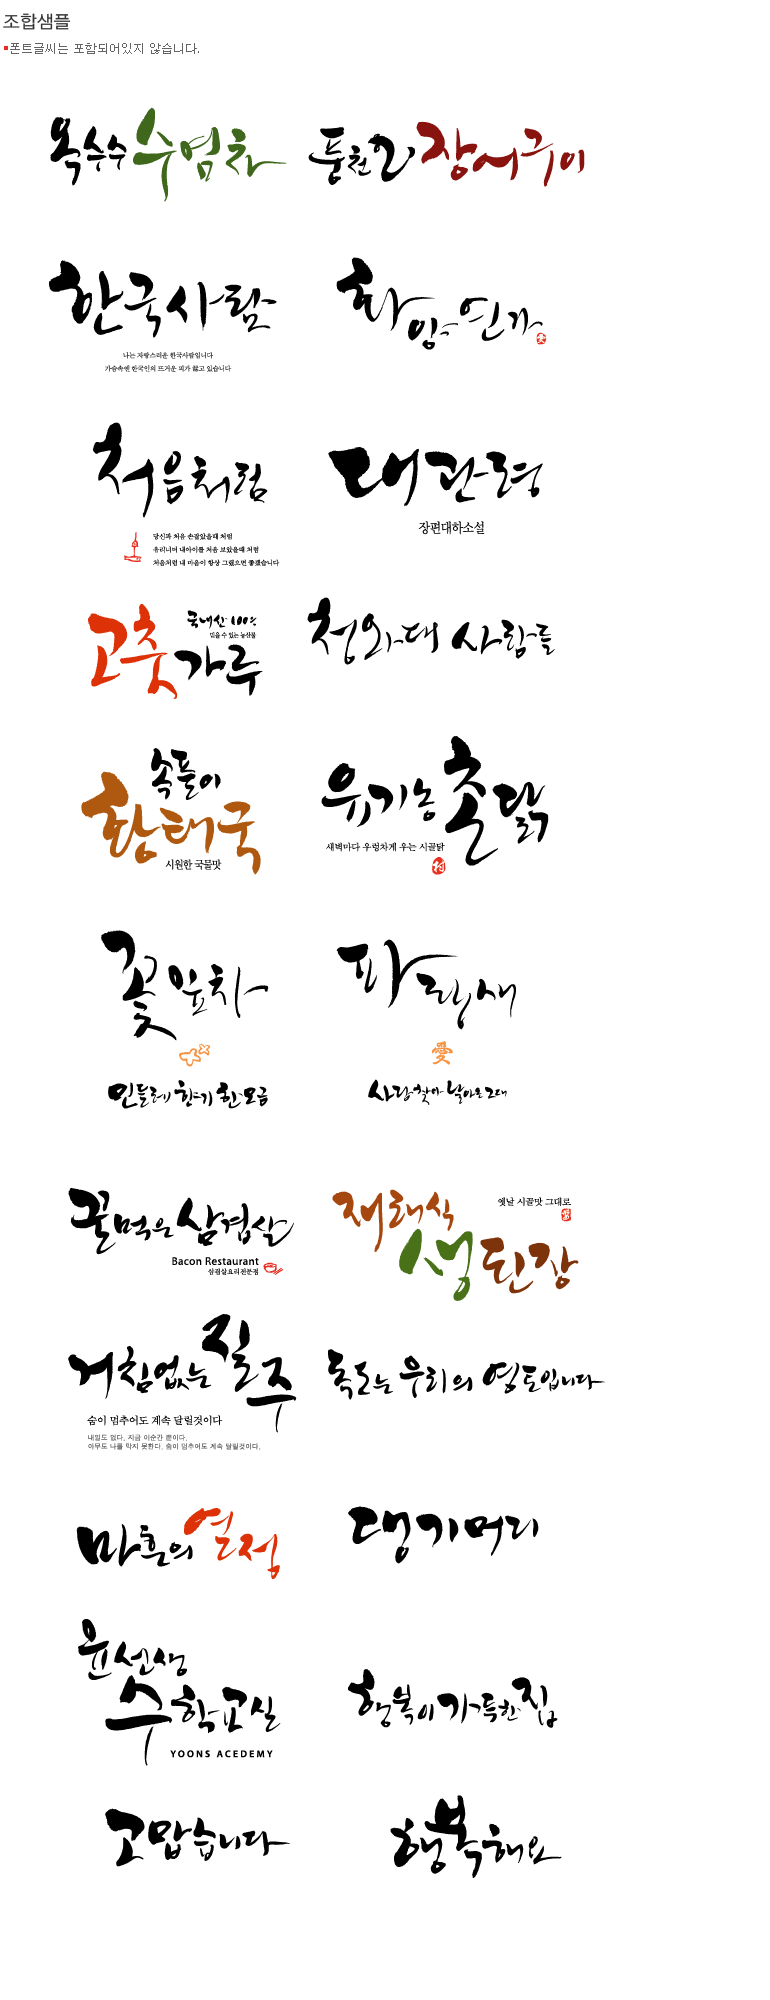 조합샘플
폰트글씨는 포함되어있지 않습니다.
옥수수 수염차
풍천 장어구이
한국사람
나는 자랑스러운 한국사람입니다
가슴속엔 한국인의 뜨거운 피가 끓고 있습니다
화양연가
처음처럼
당신과 처음 손잡았을때 처럼
우리너머 내아이를 처음 보았을때 처럼
처음처럼 내 마음이 항상 그랬으면 좋겠습니다
대관령
장편대하소설
국내산 100%
믿을 수 있는 농산물
고춧가루
청와대 사람들
속풀이
황태국
시원한 국물맛
유기농 촌닭
새벽마다 우렁차게 우는 시골닭
꽃잎차
민들레 향기 한모금
파랑새
愛
사랑찾아 날아온 그대
꿀먹은 삼겹살
Bacon Restaurant
삼겹살요리전문점
재래식
옛날 시골맛 그대로
생된장
거침없는 질주
숨이 멈추어도 계속 달릴것이다
내일도 없다. 지금 이순간 뿐이다.
아무도 나를 막지 못한다. 숨이 멈추어도 계속 달릴것이다.
독도는 우리의 영토입니다
마흔의 열정
댕기머리
윤선생
수학교실
YOONS ACEDEMY
행복이 가득한 집
고맙습니다
행복해요